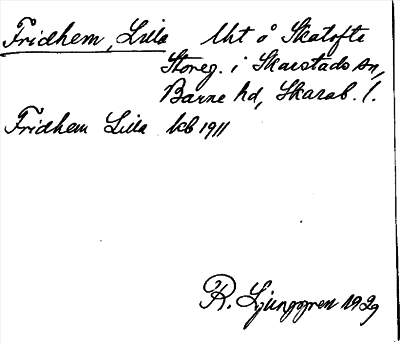 Fridhem, Lilla Uht å Skatofte
Storeg. i Skarstads sn,
Barne hd, Skarab. l.
Fridhem Lilla kb 1911
R. Ljunggren 1929